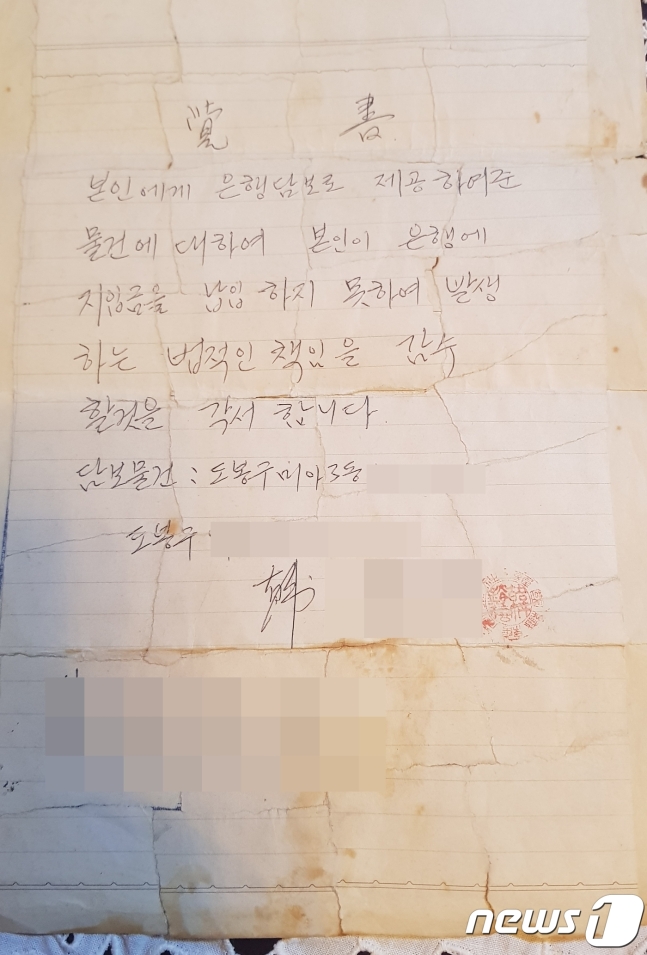 覚 書
본인에게 은행담보로 제공하여준
물건에 대하여 본인이 은행에
지입금을 납입하지 못하여 발생
하는 법적인 책임을 감수
할것을 각서 합니다.
담보물건 : 도봉구 미아3동
도봉구
韓
news1